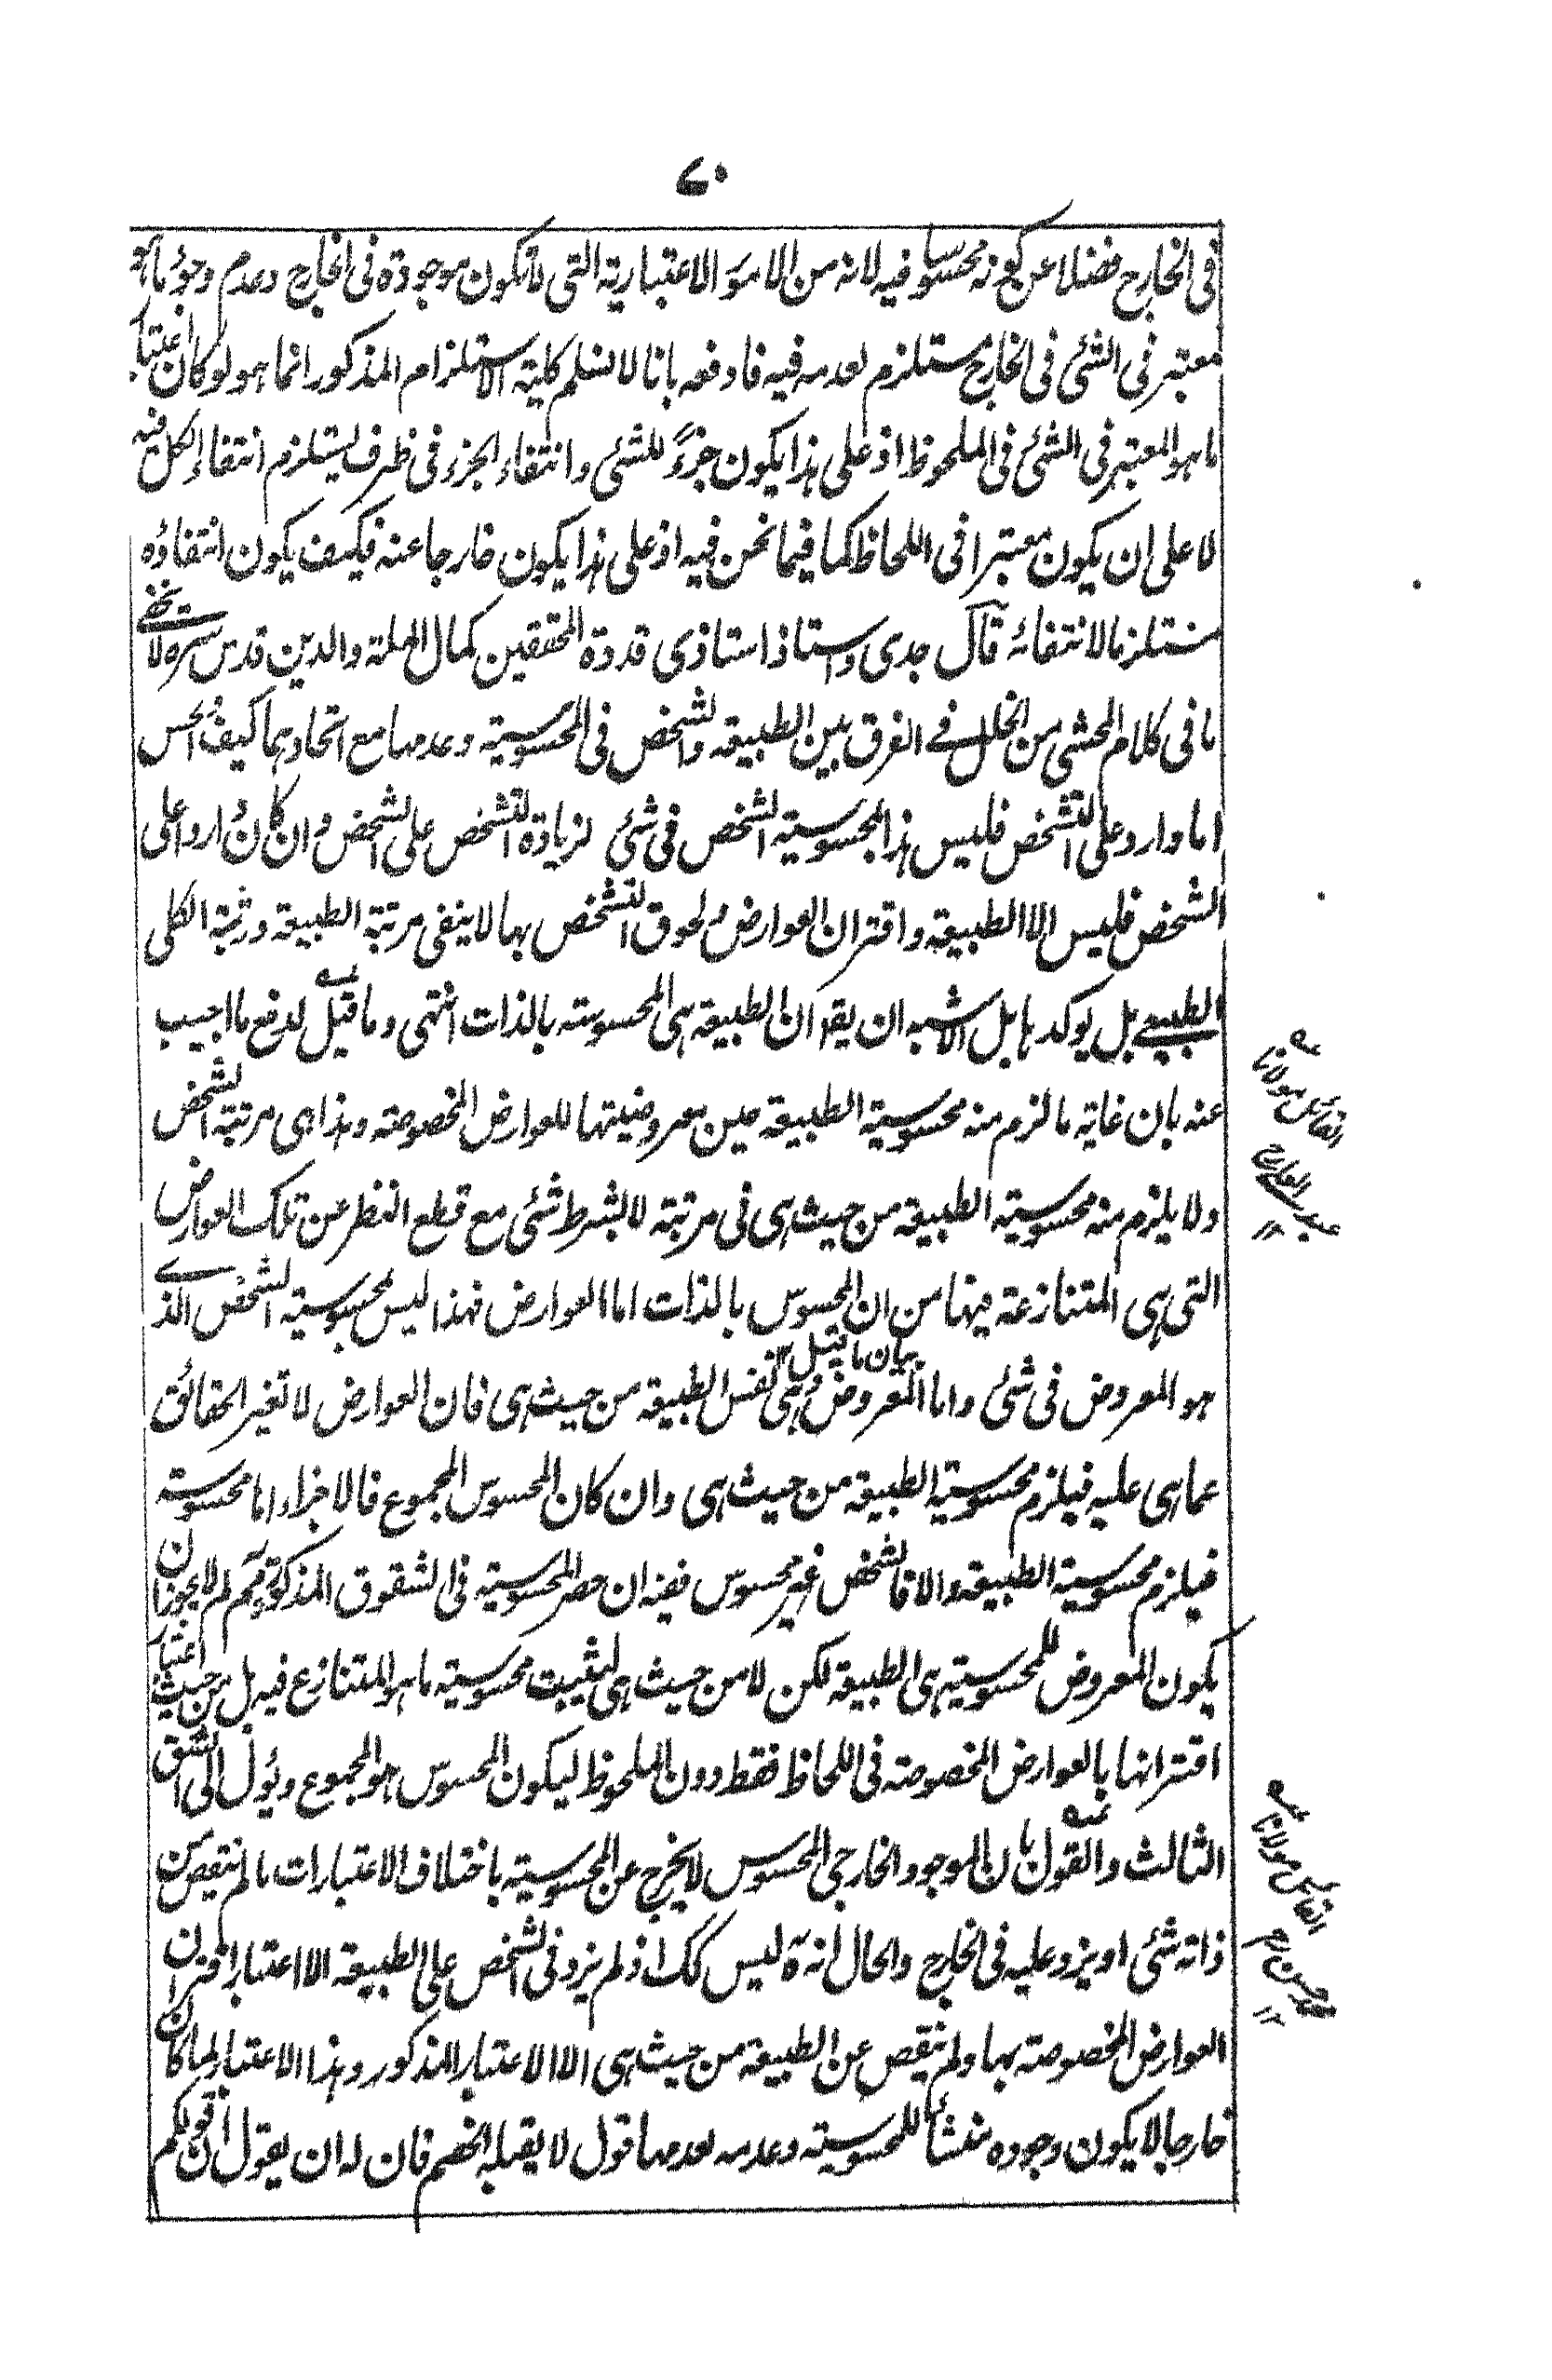 ۷۰
فى الخارج فضلا عن كونه محسوسا فيه لانه من الامور الاعتبارية التى لا تكون موجودة فى الخارج وعدم وجود ما هو
معتبر فى الشئ فى الخارج مستلزم لعدمه فيه فادفعه بانا لا نسلم كلية الاستلزام المذكور انما هو لو كان اعتبار
ما هو المعتبر فى الشئ فى الملحوظ اذ على هذا يكون جزءً للشئ وانتفاء الجزء فى ظرف يستلزم انتفاء الكل فيه
لا على ان يكون معتبرا فى اللحاظ كما فيما نحن فيه اذ على هذا يكون خارجا عنه فكيف يكون انتفاؤه
مستلزما لانتفائه قال جدى واستاذ استاذى قدوة المحققين كمال الملة والدين قدس سره لا يخفى
ما فى كلام المحشى من الخلل فى الفرق بين الطبيعة والشخص فى المحسوسية وعدمها مع اتحادهما كيف والحس
اما وارد على التشخص فليس هذا لمحسوسية الشخص فى شئ لزيادة التشخص على الشخص وان كان واردا على
الشخص فليس الا الطبيعة واقتران العوارض ولحوق التشخص بها لا ينفى مرتبة الطبيعة ورتبة الكلى
الطبيعى بل يوكدها بل الاشبه ان يقو ان الطبيعة هى المحسوسة بالذات انتهى وما قيل لدفع ما اجيب
عنه بان غاية ما لزم منه محسوسية الطبيعة حين معروضيتها للعوارض المخصوصة وهذا هى مرتبة الشخص
ولا يلزم منه محسوسية الطبيعة من حيث هى فى مرتبة لا بشرط شئ مع قطع النظر عن تلك العوارض
التى هى المتنازعة فيها من ان المحسوس بالذات اما العوارض فهذا ليس محسوسية الشخص الذى
بيان ما قيل
هو المعروض فى شئ واما المعروض وهى نفس الطبيعة من حيث هى فان العوارض لا تغير الحقائق
عما هى عليه فيلزم محسوسية الطبيعة من حيث هى وان كان المحسوس المجموع فالاجزاء اما محسوسة
فيلزم محسوسية الطبيعة والا فالشخص غير محسوس ففيه ان حصر المحسوسية فى الشقوق المذكورة مم لم لا يجوز ان
يكون المعروض للمحسوسية هى الطبيعة لكن لا من حيث هى ليثبت محسوسية ما هو المتنازع فيه بل من حيث اعتبار
اقترانها بالعوارض المخصوصة فى اللحاظ فقط دون الملحوظ ليكون المحسوس هو المجموع ويؤل الى الشق
الثالث والقول بان الموجود الخارجى المحسوس لا يخرج عن المحسوسية باختلاف الاعتبارات ما لم ينقص من
ذاته شئ او يزد عليه فى الخارج والحال انه ليس كك اذ لم يزد فى الشخص على الطبيعة الا اعتبار اقتران
العوارض المخصوصة بها ولم ينقص عن الطبيعة من حيث هى الا الاعتبار المذكور وهذا الاعتبار لما كان
خارجا لا يكون وجوده منشأ للمحسوسية وعدمه لعدمها قول لا يقبله الخصم فان له ان يقول ان قولكم
القائل مولانا
القائل مولانا